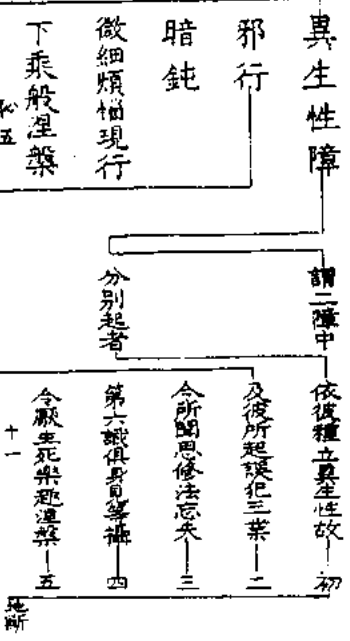 異生性障
邪行
暗鈍
微細煩惱現行
下乘般涅槃
謂二障中
分別起者
依彼種立異生性故
初
及彼所起誤犯三業
二
令所聞思修法忘失
三
第六識俱身見等攝
四
令厭生死樂趣涅槃
五
地斷
十一